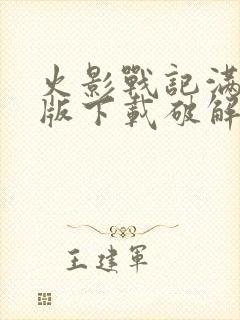 火影戰記滿
版下載破解
王建軍